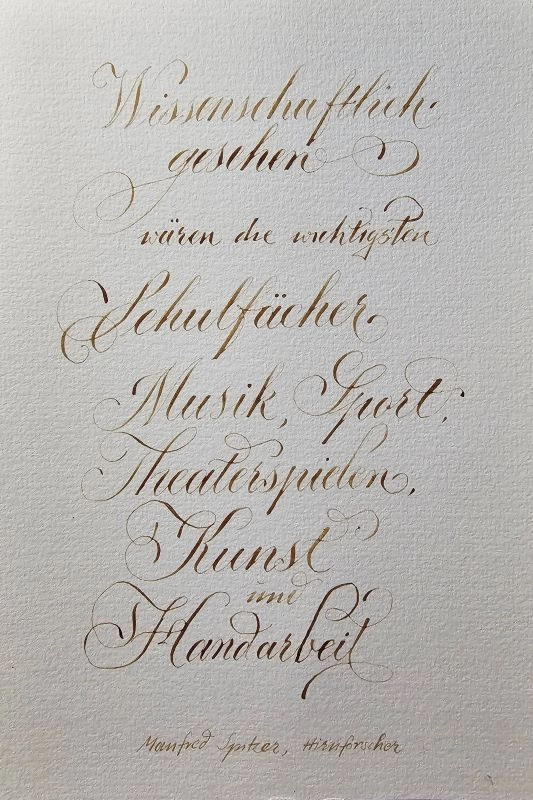 Wissenschaftlich
gesehen
wären die wichtigsten
Schulfächer
Musik, Sport,
Theaterspielen,
Kunst
und
Handarbeit
Manfred Spitzer, Hirnforscher